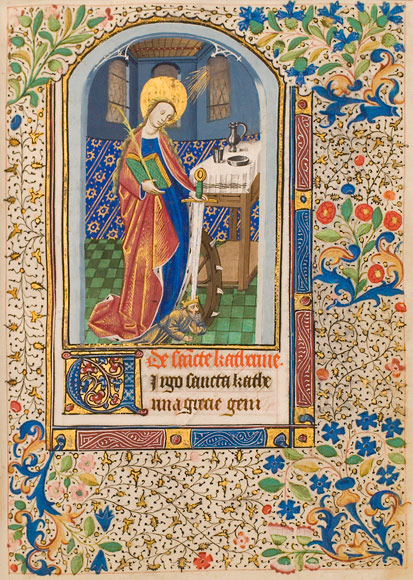 De saīcte katherine.
Virgo sancta kathe
rina grecie gem